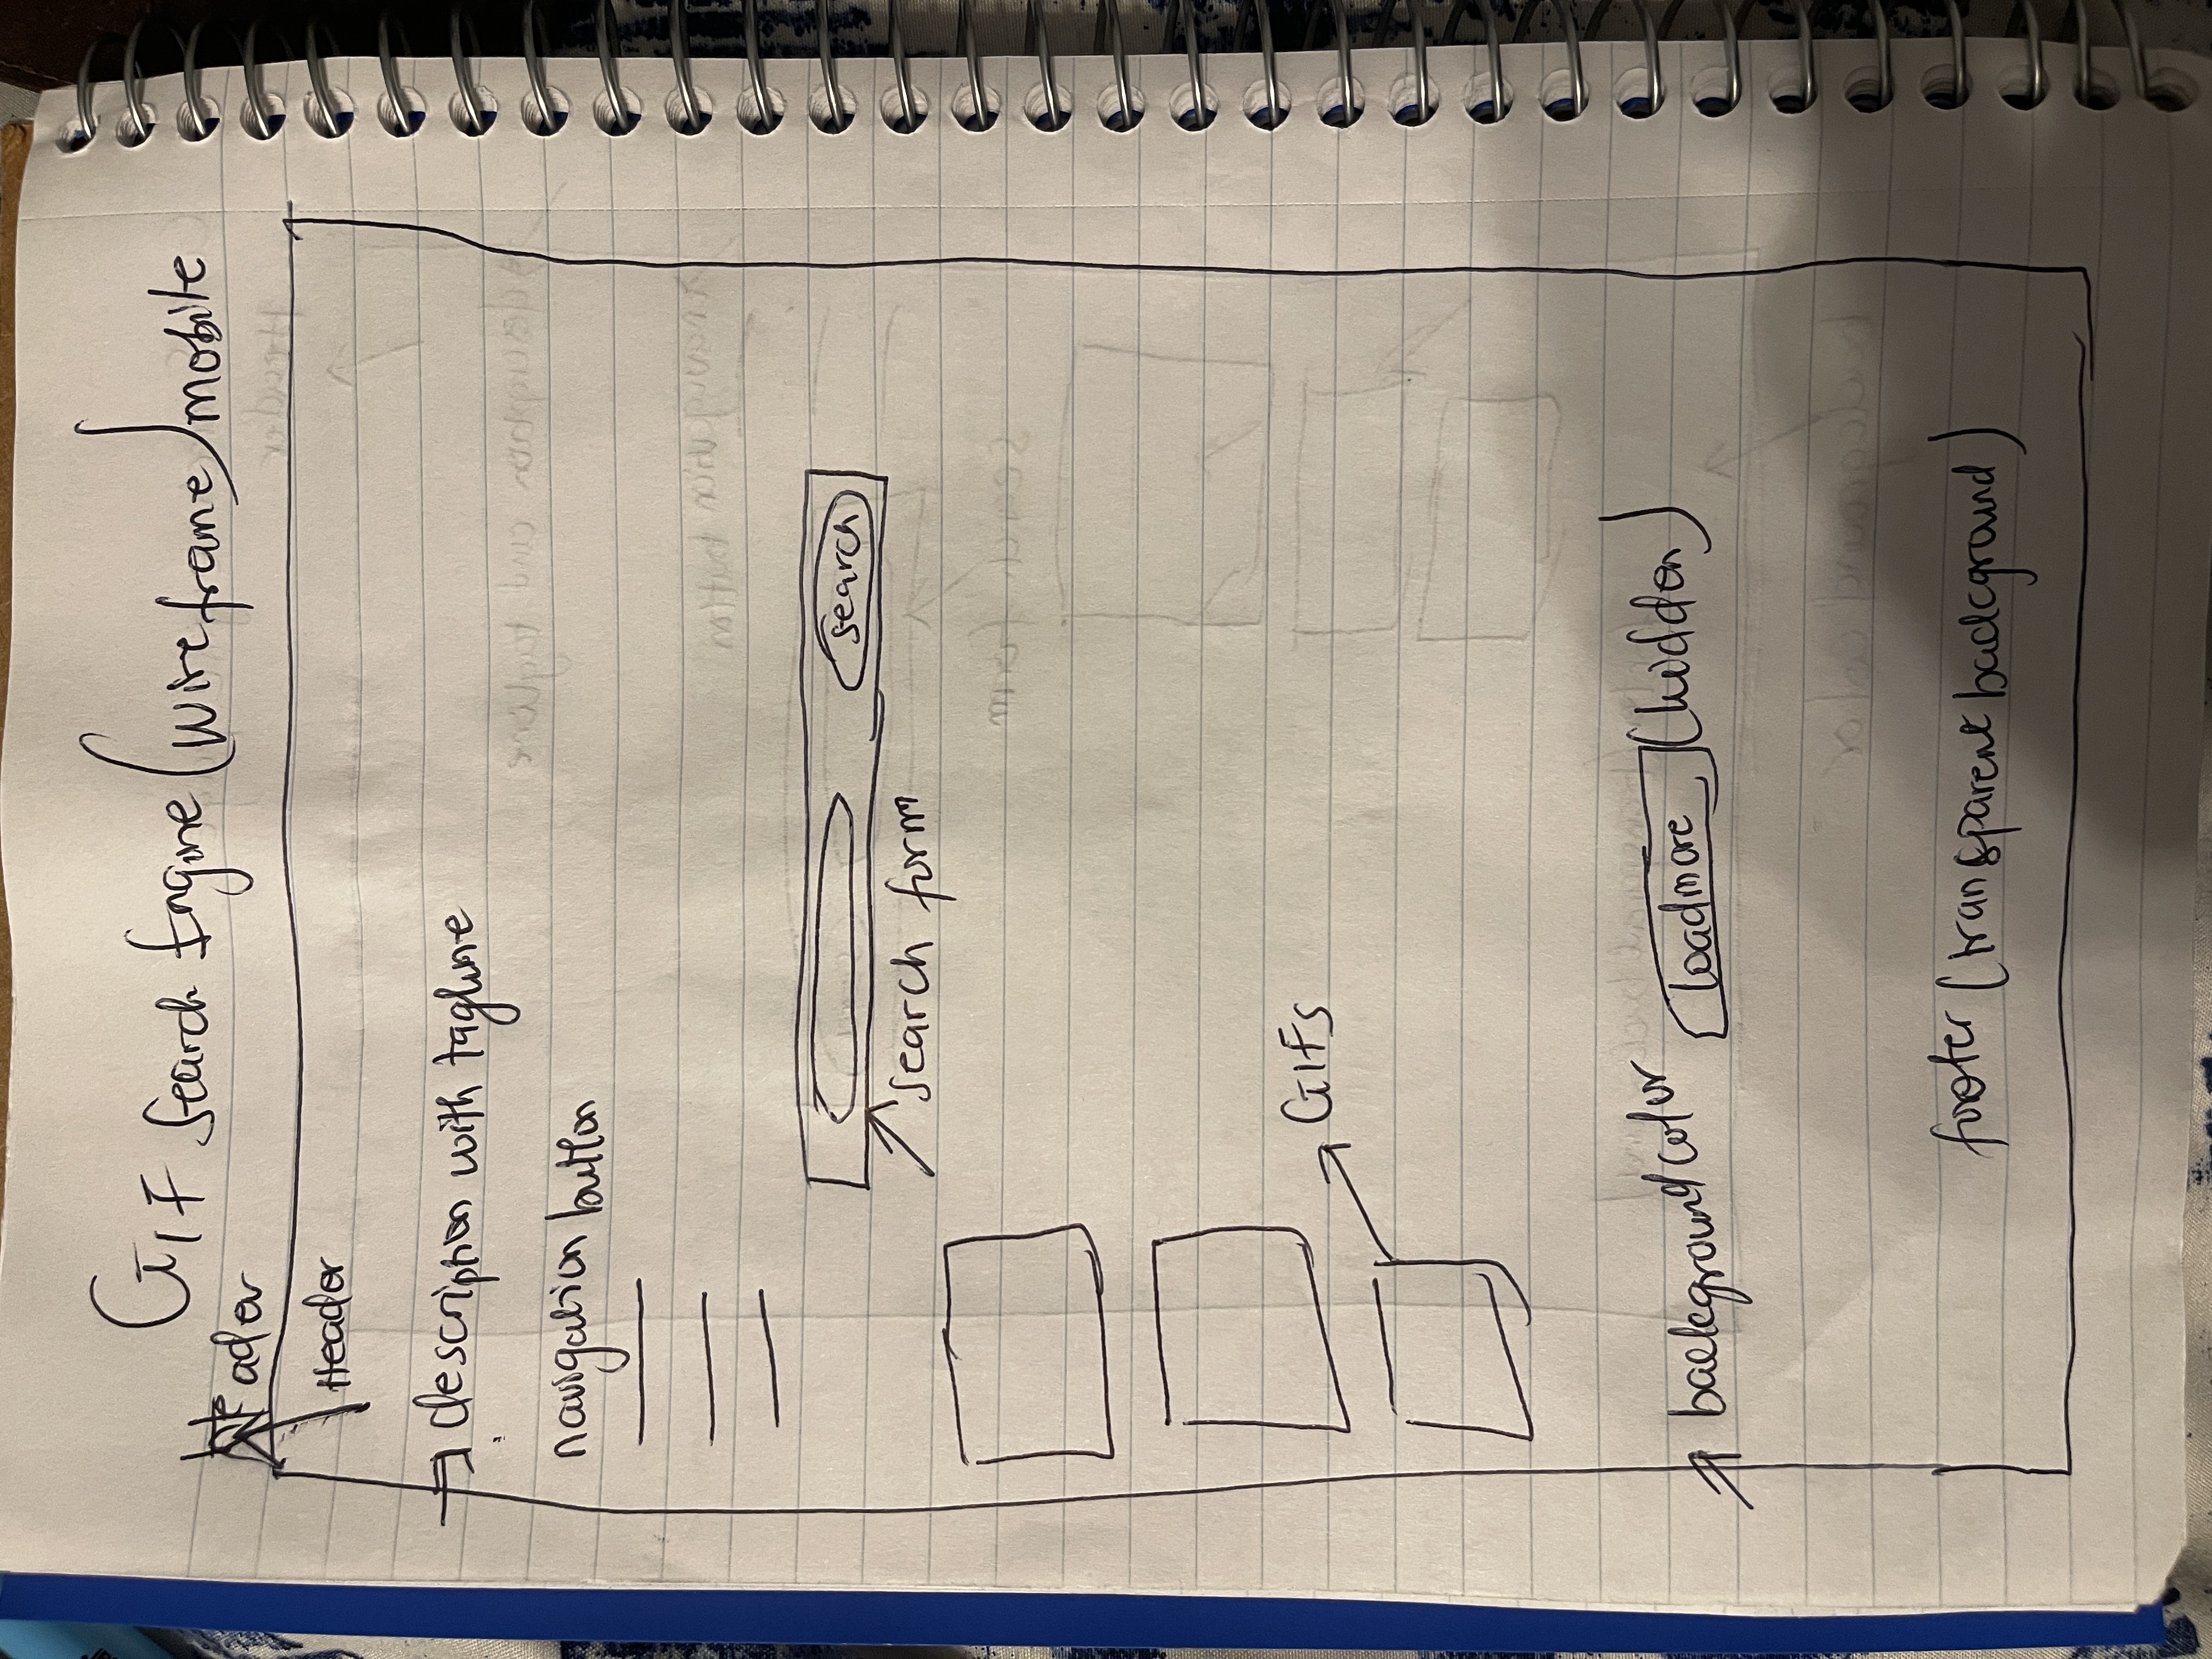 GIF Search Engine (wireframe) mobile
Header
Header
description with tagline
navigation button
search
search form
GIFs
background color loadmore (hidden)
footer (transparent background)